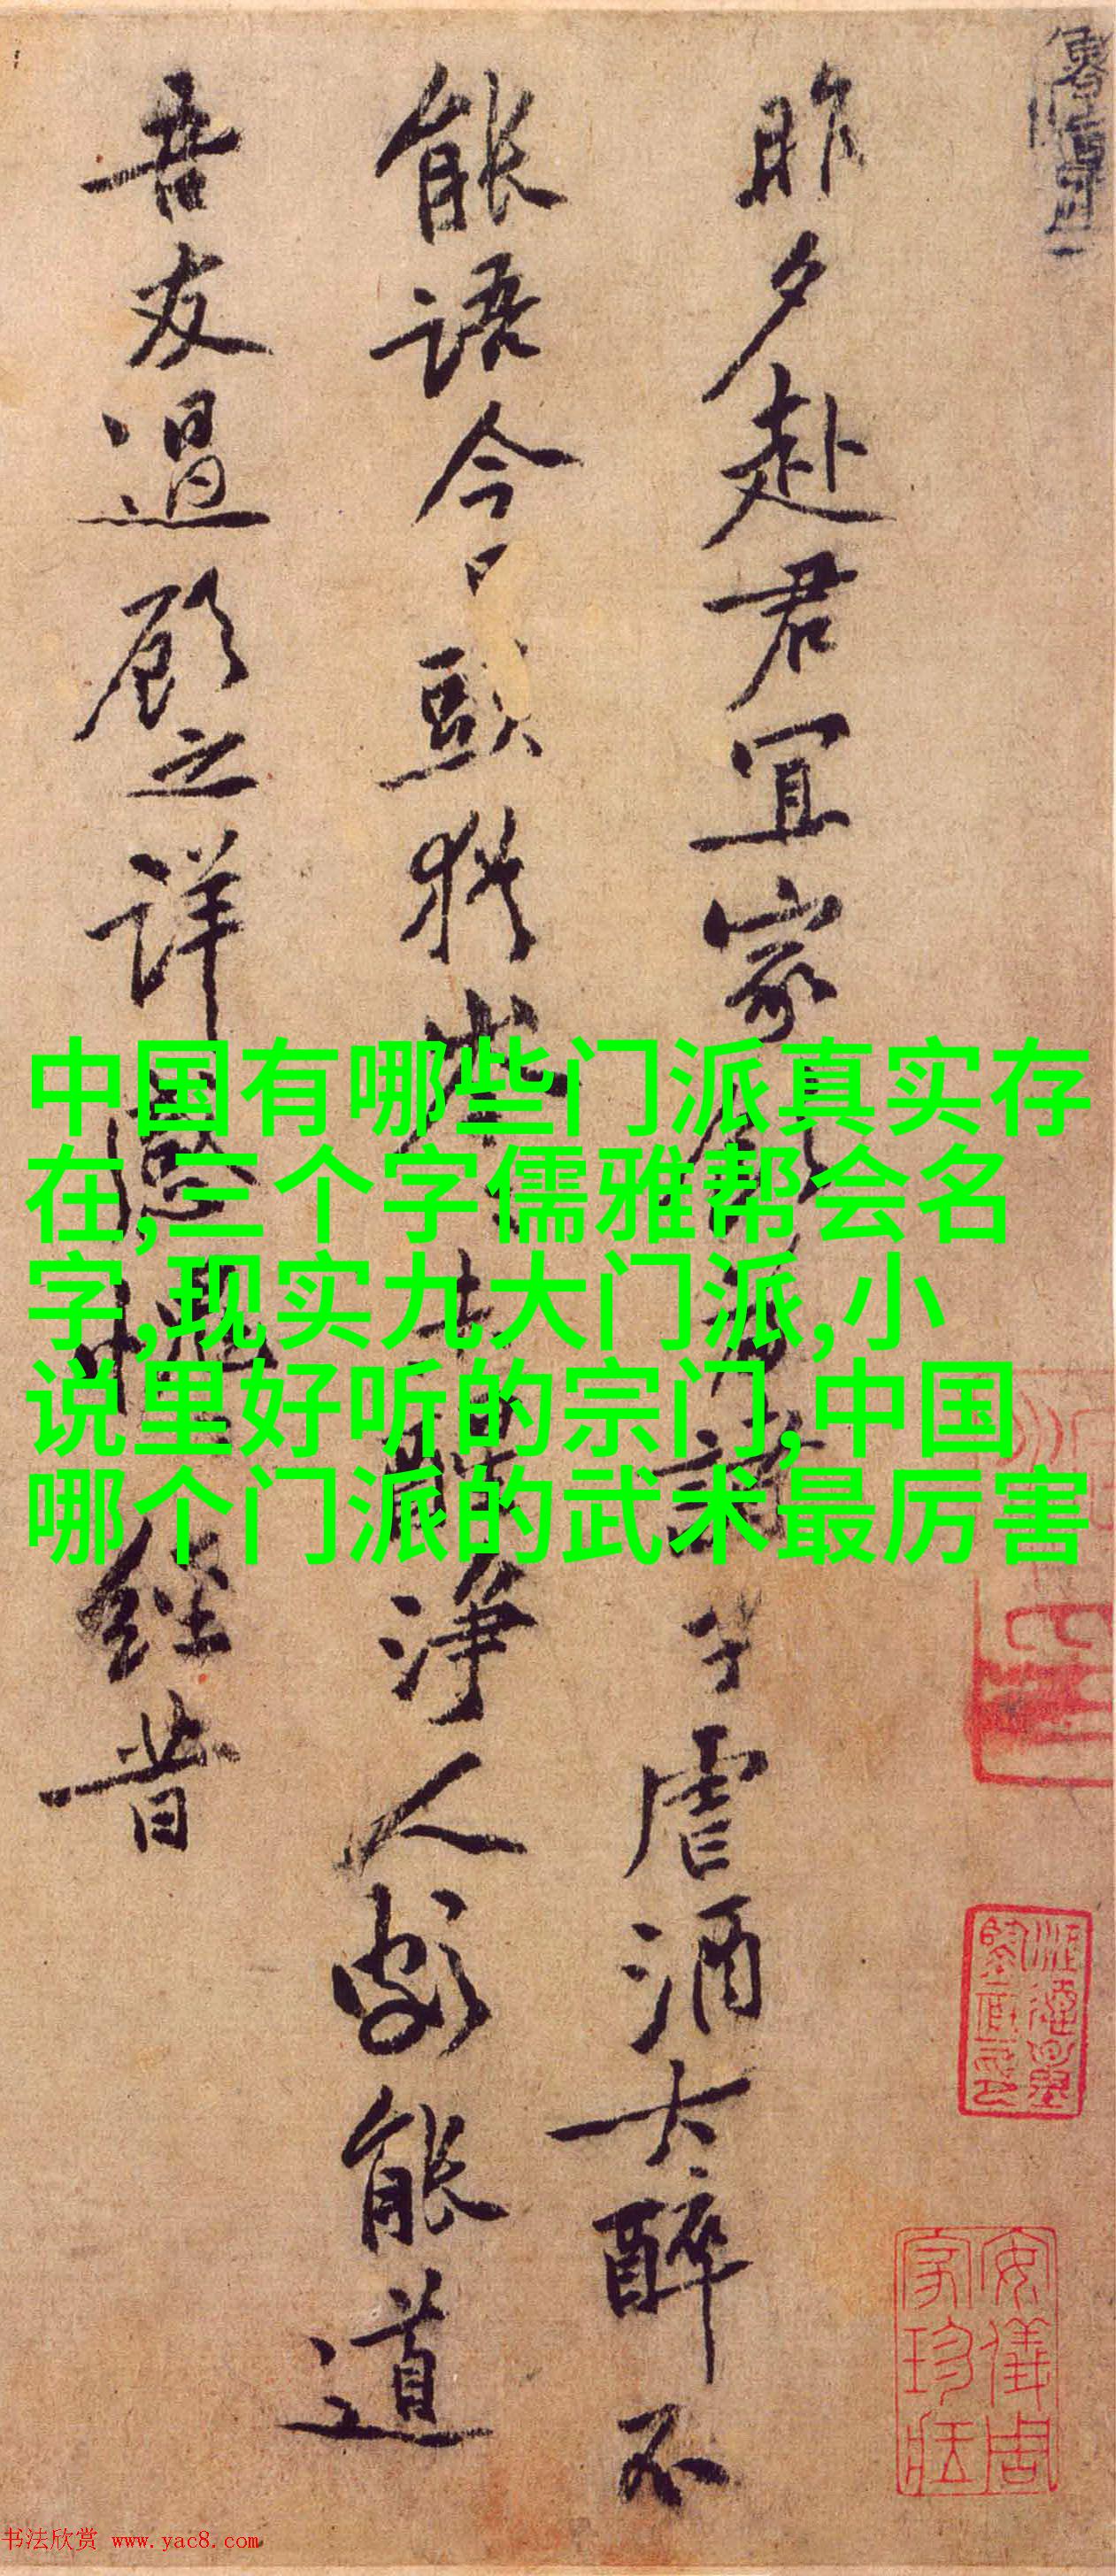 昨夕赴君宜家
子虐酒大醉不
能語今日頭猶
淨人劇能道
吾友過顧之詳
感愧經昔
中国有哪些门派真实存
在,三个字儒雅帮会名
字,现实九大门派,小
说里好听的宗门,中国
哪个门派的武术最厉害
安儀周
家珍藏
书法欣赏 www.yac8.com